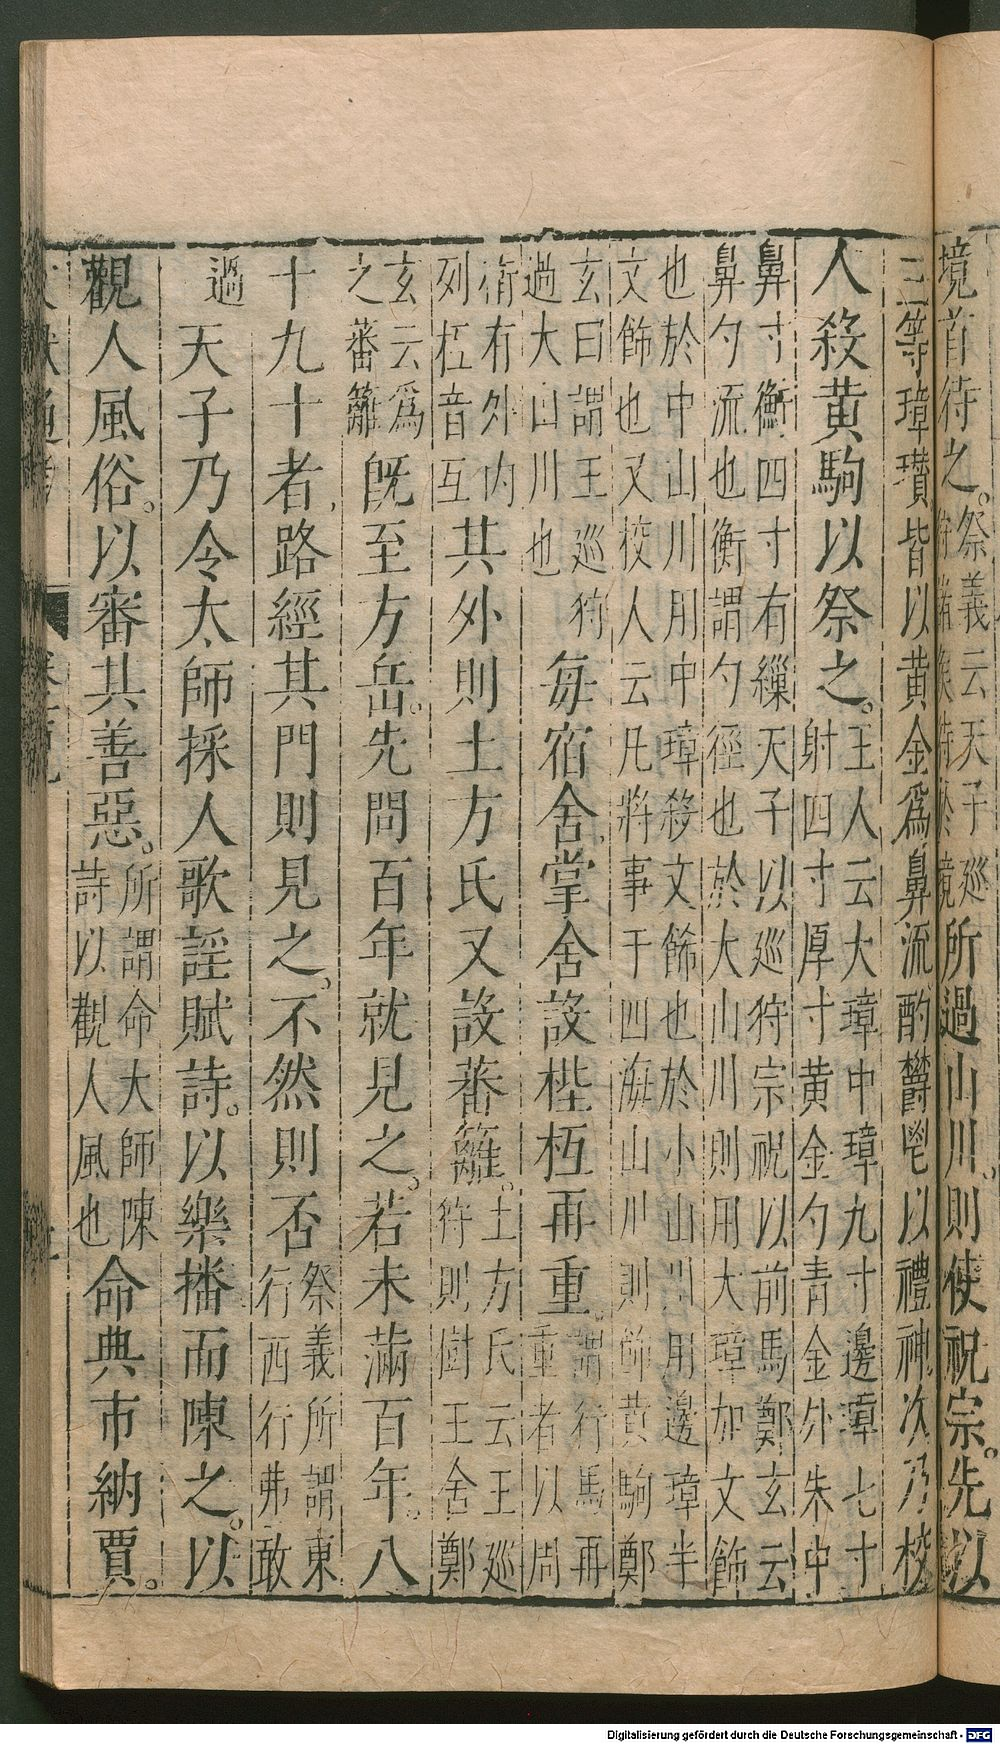 境首待之。祭義云天子巡狩諸侯待於境所過山川。則使祝宗。先以
三等璋瓚皆以黄金爲鼻流酌欝鬯以禮神次乃校
人殺黄駒以祭之。王人云大璋中璋九寸邊璋七寸射四寸厚寸黄金勺青金外朱中
鼻寸衡四寸有繅天子以巡狩宗祝以前馬鄭玄云鼻勺流也衡謂勺徑也於大山川則用大璋加文飾
也於中山川用中璋殺文飾也於小山川用邊璋半文飾也又校人云凡將事于四海山川則飾黄駒鄭
玄曰謂王巡狩過大山川也每宿舍。掌舍設梐枑再重。謂行馬再重者以周
衛有外内列枑音互其外則土方氏又設蕃籬。土方氏云王巡狩則樹王舍鄭
玄云爲之蕃籬既至方岳。先問百年就見之。若未滿百年。八
十九十者，路經其門則見之。不然則否祭義所謂東行西行弗敢
過天子乃令太師採人歌謡賦詩。以樂播而陳之。以
觀人風俗。以審其善惡。所謂命大師陳詩以觀人風也命典市納賈。